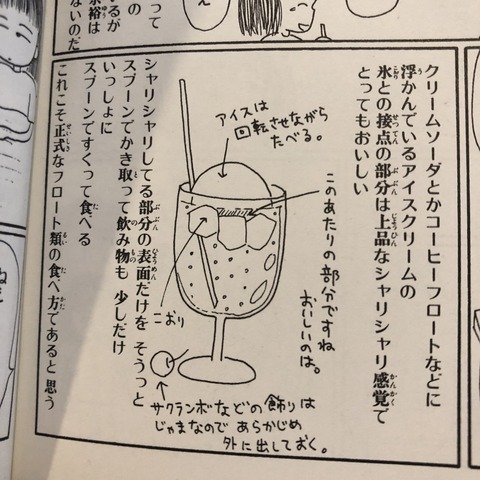 クリームソーダとかコーヒーフロートなどに
浮かんでいるアイスクリームの
氷との接点の部分は上品なシャリシャリ感覚で
とってもおいしい
アイスは
回転させながら
たべる。
このあたりの部分ですね
おいしいのは。
こおり
サクランボなどの飾りは
じゃまなのであらかじめ
外に出しておく。
シャリシャリしてる部分の表面だけをそうっと
スプーンでかき取って飲み物も少しだけ
いっしょに
スプーンですくって食べる
これこそ正式なフロート類の食べ方であると思う